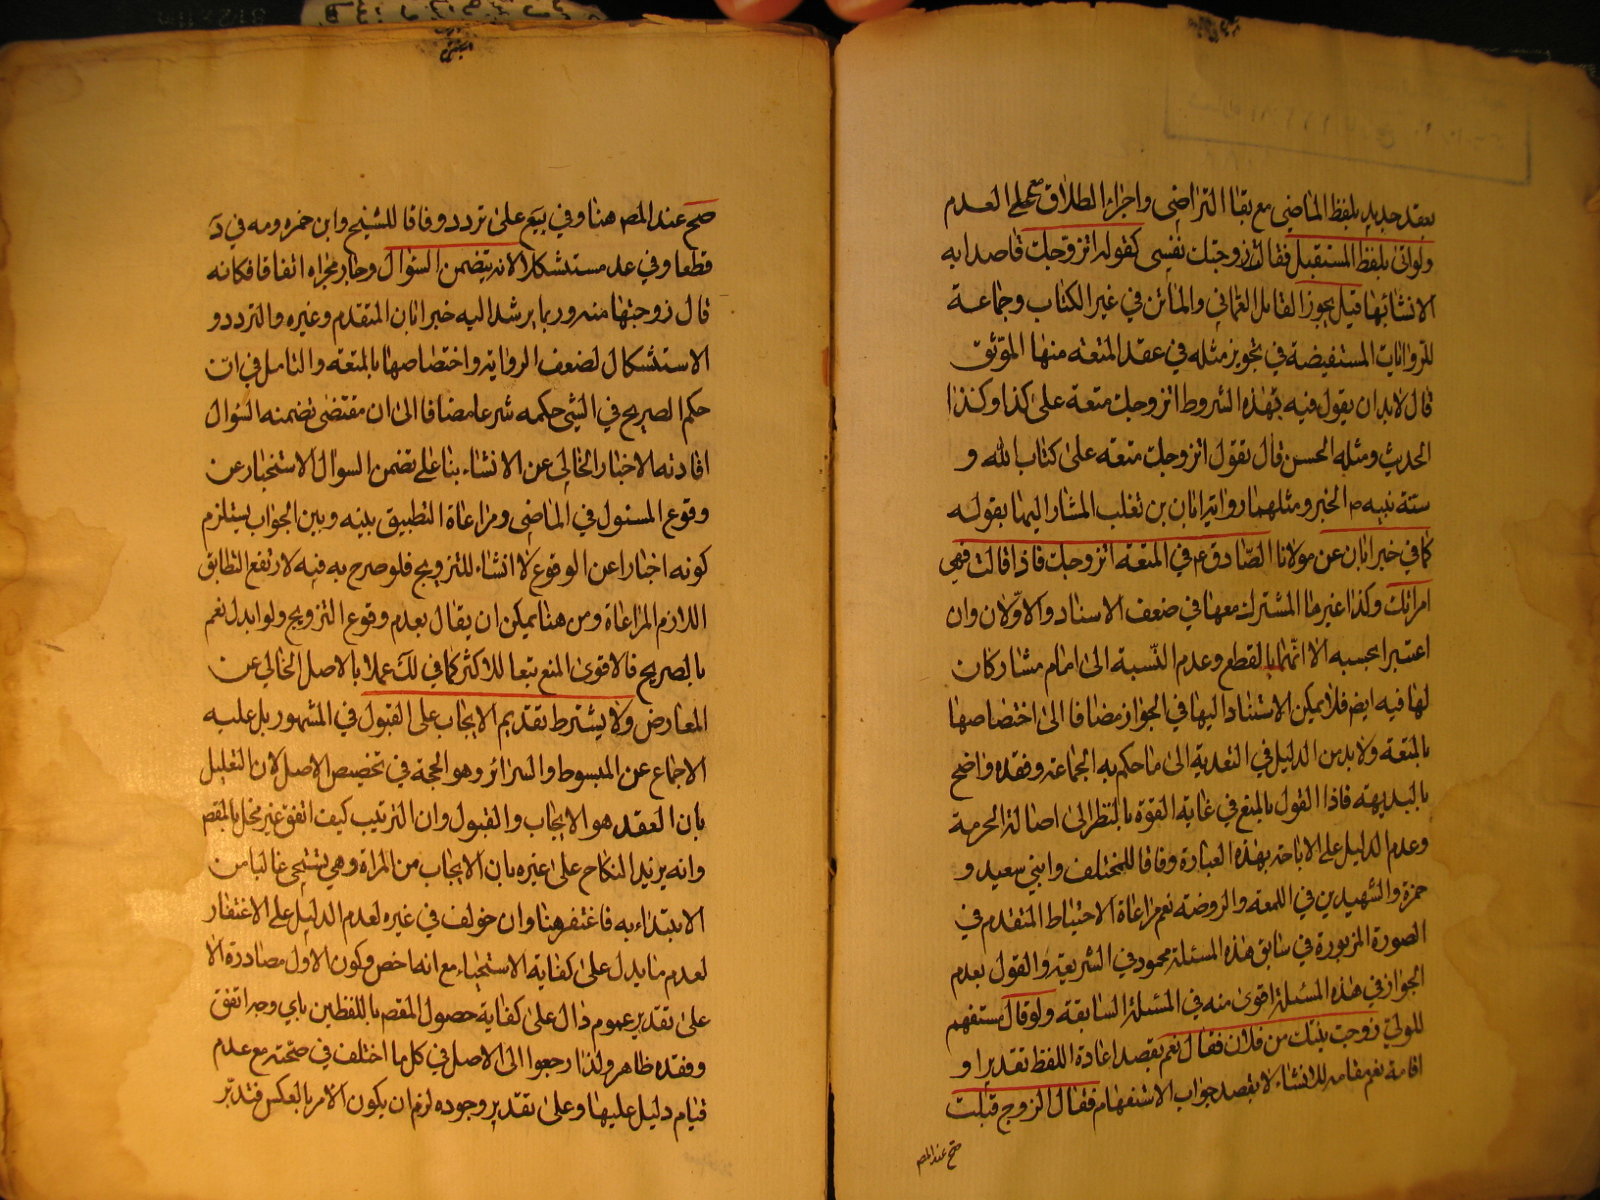 بعقد جديد بلفظ الماضي مع بقاء التراضي واجراء الطلاق على العدم
ولو اتى بلفظ المستقبل فقالت زوجتك نفسي كقوله اتزوجك قاصدا به
الانشاء بها قيل يجوز القائل العماني والماتن في غير الكتاب وجماعة
للروايات المستفيضة في تجويز مثله في عقد المتعة منها الموثق
قال لابد ان يقول فيه بهذه الشروط اتزوجك متعة على كذا وكذا
الحديث ومثله الحسن قال تقول اتزوجك متعة على كتاب الله و
سنة نبيه ص الخبر ومثلهما رواية ابان بن تغلب المشار اليها بقوله
كما في خبر ابان عن مولانا الصادق ع في المتعة اتزوجك فاذا قالت فهي
امرأتك وكذا غيرها المشترك معها في ضعف الاسناد والاولان وان
اعتبرا بحسبه الا انهما بالقطع وعدم النسبة الى امام مشاركان
لها فيه ايضا فلا يمكن الاستناد اليها في الجواز مضافا الى اختصاصها
بالمتعة ولابد من الدليل في التعدية الى ما حكم به الجماعة وفقده واضح
بالبديهة فاذا القول بالمنع في غاية القوة بالنظر الى اصالة الحرمة
وعدم الدليل على الاباحة بهذه العبارة وفاقا للمختلف وابني سعيد و
حمزة والشهيدين في اللمعة والروضة نعم مراعاة الاحتياط المتقدم في
الصورة المزبورة في سابق هذه المسئلة محمود في الشريعة والقول بعدم
الجواز في هذه المسئلة اقوى منه في المسئلة السابقة ولو قال مستفهم
للولي زوجت بنتك من فلان فقال نعم بقصد اعادة اللفظ تقديرا و
اقامة نعم مقامه للانشاء لا بقصد جواب الاستفهام فقال الزوج قبلت
صح عند المص
صح عند المص هنا وفي يع على تردد وفاقا للشيخ وابن حمزه ومه في د
قطعا وفي عد مستشكلا لانه يتضمن السؤال وجار مجراه اتفاقا فكانه
قال زوجتها منه وربما يرشد اليه خبر ابان المتقدم وغيره والتردد و
الاستشكال لضعف الرواية واختصاصها بالمتعه والتامل في ان
حكم الصريح في الشئ حكمه شرعا مضافا الى ان مقتضى تضمنه السؤال
افادته الاخبار الخالي عن الانشاء بناء على تضمن السؤال الاستخبار عن
وقوع المسئول في الماضي ومراعاة التطبيق بينه وبين الجواب يستلزم
كونه اخبارا عن الوقوع لا انشاء للتزويج فلو صرح به فيه لارتفع التطابق
اللازم المراعاة ومن هنا يمكن ان يقال بعدم وقوع التزويج ولو ابدل نعم
بالصريح فالاقوى المنع تبعا للاكثر كما في لك عملا بالاصل الخالي عن
المعارض ولا يشترط تقديم الايجاب على القبول في المشهور بل عليه
الاجماع عن المبسوط والسرائر وهو الحجة في تخصيص الاصل لان التعليل
بان العقد هو الايجاب والقبول وان الترتيب كيف اتفق غير مخل بالمقص
وانه يزيد النكاح على غيره بان الايجاب من المراة وهي تستحي غالبا من
الابتداء به فاغتفر هنا وان خولف في غيره لعدم الدليل على الاغتفار
لعدم ما يدل على كفاية الاستحياء مع انه اخص وكون الاول مصادرة الا
على تقدير عموم دال على كفاية حصول المقص باللفظين باي وجه اتفق
وفقده ظاهر ولذا رجعوا الى الاصل في كل ما اختلف في صحته مع عدم
قيام دليل عليها وعلى تقدير وجوده لزم ان يكون الامر بالعكس فتدبر